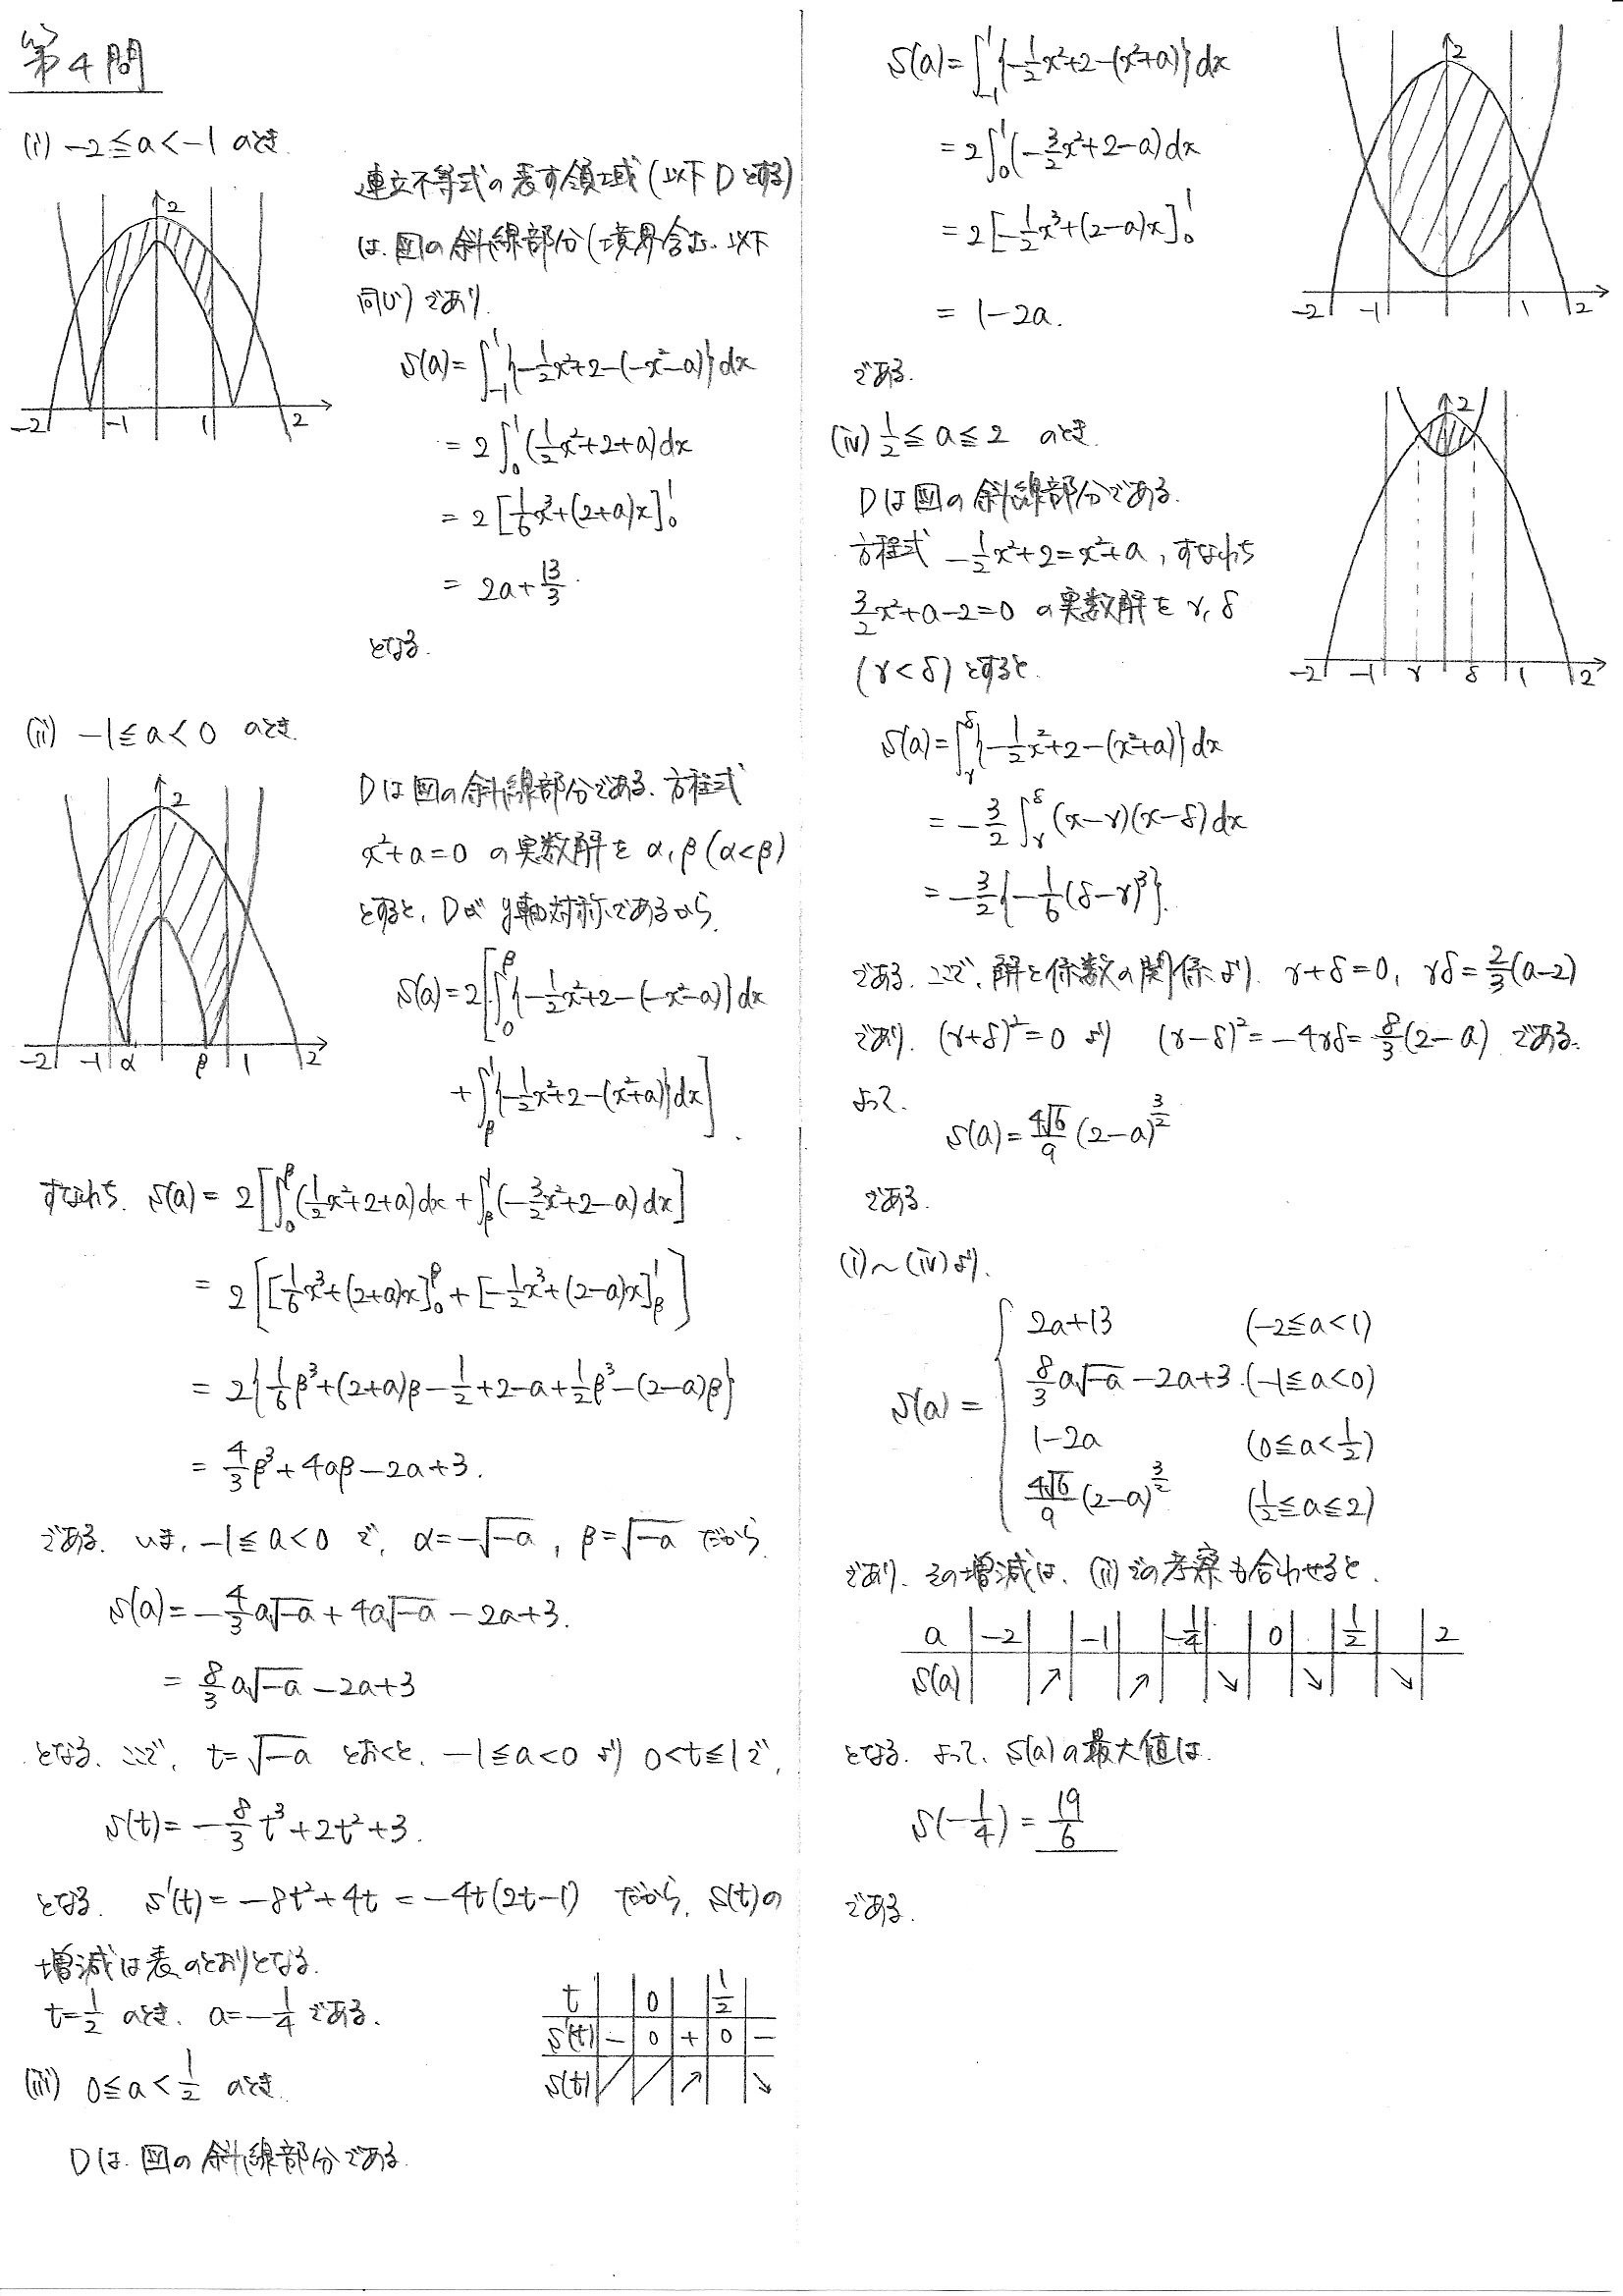 第4問
(i) -2≦a<-1 のとき.
連立不等式の表す領域(以下Dとする)
は.図の斜線部分(境界含む.以下
同じ)であり.
S(a)=∫_{-1}^{1}{-1/2x²+2-(-x²-a)}dx
=2∫_0^1(1/2x²+2+a)dx
=2[1/6x³+(2+a)x]_0^1
=2a+13/3.
となる.
2
-2 -1 1 2
(ii) -1≦a<0 のとき.
Dは図の斜線部分である.方程式
x²+a=0 の実数解を α,β(α<β)
とすると,Dがy軸対称であるから.
S(a)=2[∫_0^β{-1/2x²+2-(-x²-a)}dx
+∫_β^1{-1/2x²+2-(x²+a)}dx].
2
-2 -1 α β 1 2
すなわち. S(a)=2[∫_0^β(1/2x²+2+a)dx+∫_β^1(-3/2x²+2-a)dx]
=2[[1/6x³+(2+a)x]_0^β+[-1/2x³+(2-a)x]_β^1]
=2{1/6β³+(2+a)β-1/2+2-a+1/2β³-(2-a)β}
=4/3β³+4aβ-2a+3.
である. いま,-1≦a<0 で, α=-√-a , β=√-a だから.
S(a)=-4/3a√-a+4a√-a-2a+3.
=8/3a√-a-2a+3
となる.ここで, t=√-a とおくと.-1≦a<0 より 0<t≦1で,
S(t)=-8/3t³+2t²+3.
となる. S'(t)=-8t²+4t=-4t(2t-1) だから.S(t)の
増減は表のとおりとなる.
t=1/2 のとき. a=-1/4 である.
t 0 1/2
S'(t) - 0 + 0 -
S(t) ↗ ↘
(iii) 0≦a<1/2 のとき.
Dは.図の斜線部分である.
S(a)=∫_{-1}^{1}{-1/2x²+2-(x²+a)}dx
=2∫_0^1(-3/2x²+2-a)dx
=2[-1/2x³+(2-a)x]_0^1
=1-2a.
である.
2
-2 -1 1 2
(iv) 1/2≦a≦2 のとき.
Dは図の斜線部分である.
方程式 -1/2x²+2=x²+a,すなわち
3/2x²+a-2=0 の実数解を γ,δ
(γ<δ)とすると.
2
-2 -1 γ δ 1 2
S(a)=∫_γ^δ{-1/2x²+2-(x²+a)}dx
=-3/2∫_γ^δ(x-γ)(x-δ)dx
=-3/2{-1/6(δ-γ)³}.
である.ここで,解と係数の関係より. γ+δ=0, γδ=2/3(a-2)
であり. (γ+δ)²=0 より (γ-δ)²=-4γδ=8/3(2-a) である.
よって.
S(a)=4√6/9(2-a)^{3/2}
である.
(i)~(iv)より.
S(a)={
2a+13 (-2≦a<1)
8/3a√-a-2a+3.(-1≦a<0)
1-2a (0≦a<1/2)
4√6/9(2-a)^{3/2} (1/2≦a≦2)
であり.その増減は.(ii)での考察も合わせると.
a -2 -1 -1/4 0 1/2 2
S(a) ↗ ↗ ↘ ↘ ↘
となる.よって.S(a)の最大値は.
S(-1/4)=19/6
である.